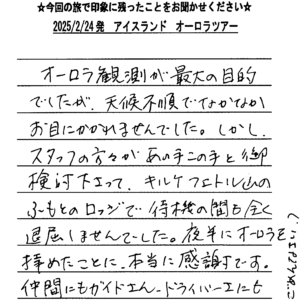 ☆今回の旅で印象に残ったことをお聞かせください☆
2025/2/24発　アイスランド　オーロラツアー
オーロラ観測が最大の目的
でしたが、天候不順でなかなか
お目にかかれませんでした。しかし、
スタッフの方々があの手この手と御
検討下さって、キルキュフェトル山の
ふもとのロッジで待機の間も全く
退屈しませんでした。夜半にオーロラを
拝めたことに、本当に感謝です。
仲間にもガイドさん、ドライバーさんにも